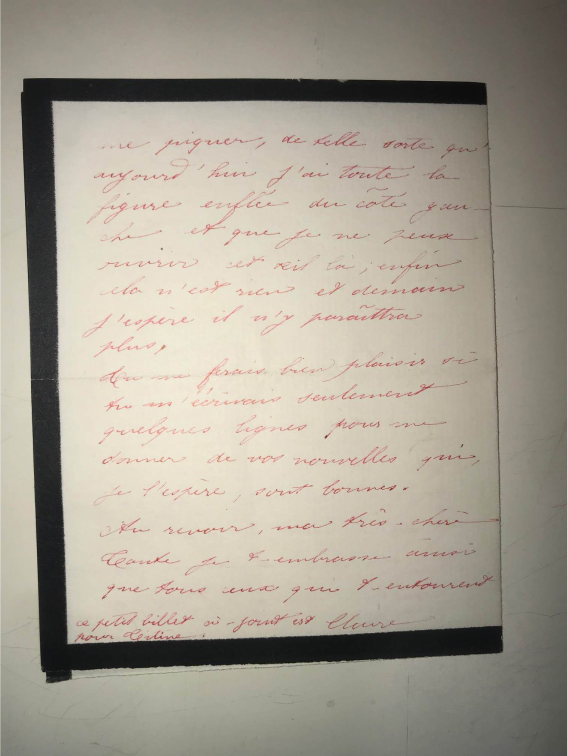 me piquer, de telle sorte qu'
aujourd'hui j'ai toute la
figure enflée du côté gau-
che et que je ne peux
ouvrir cet œil là, enfin
cela n'est rien et demain
j'espère il n'y paraîttra
plus.
Tu me ferais bien plaisir si
tu m'écrivais seulement
quelques lignes pour me
donner de vos nouvelles qui,
je l'espère, sont bonnes.
Au revoir, ma très-chère
Tante je t-embrasse ainsi
que tous ceux qui t-entourent
Claire
ce petit billet ci-joint est
pour Céline.